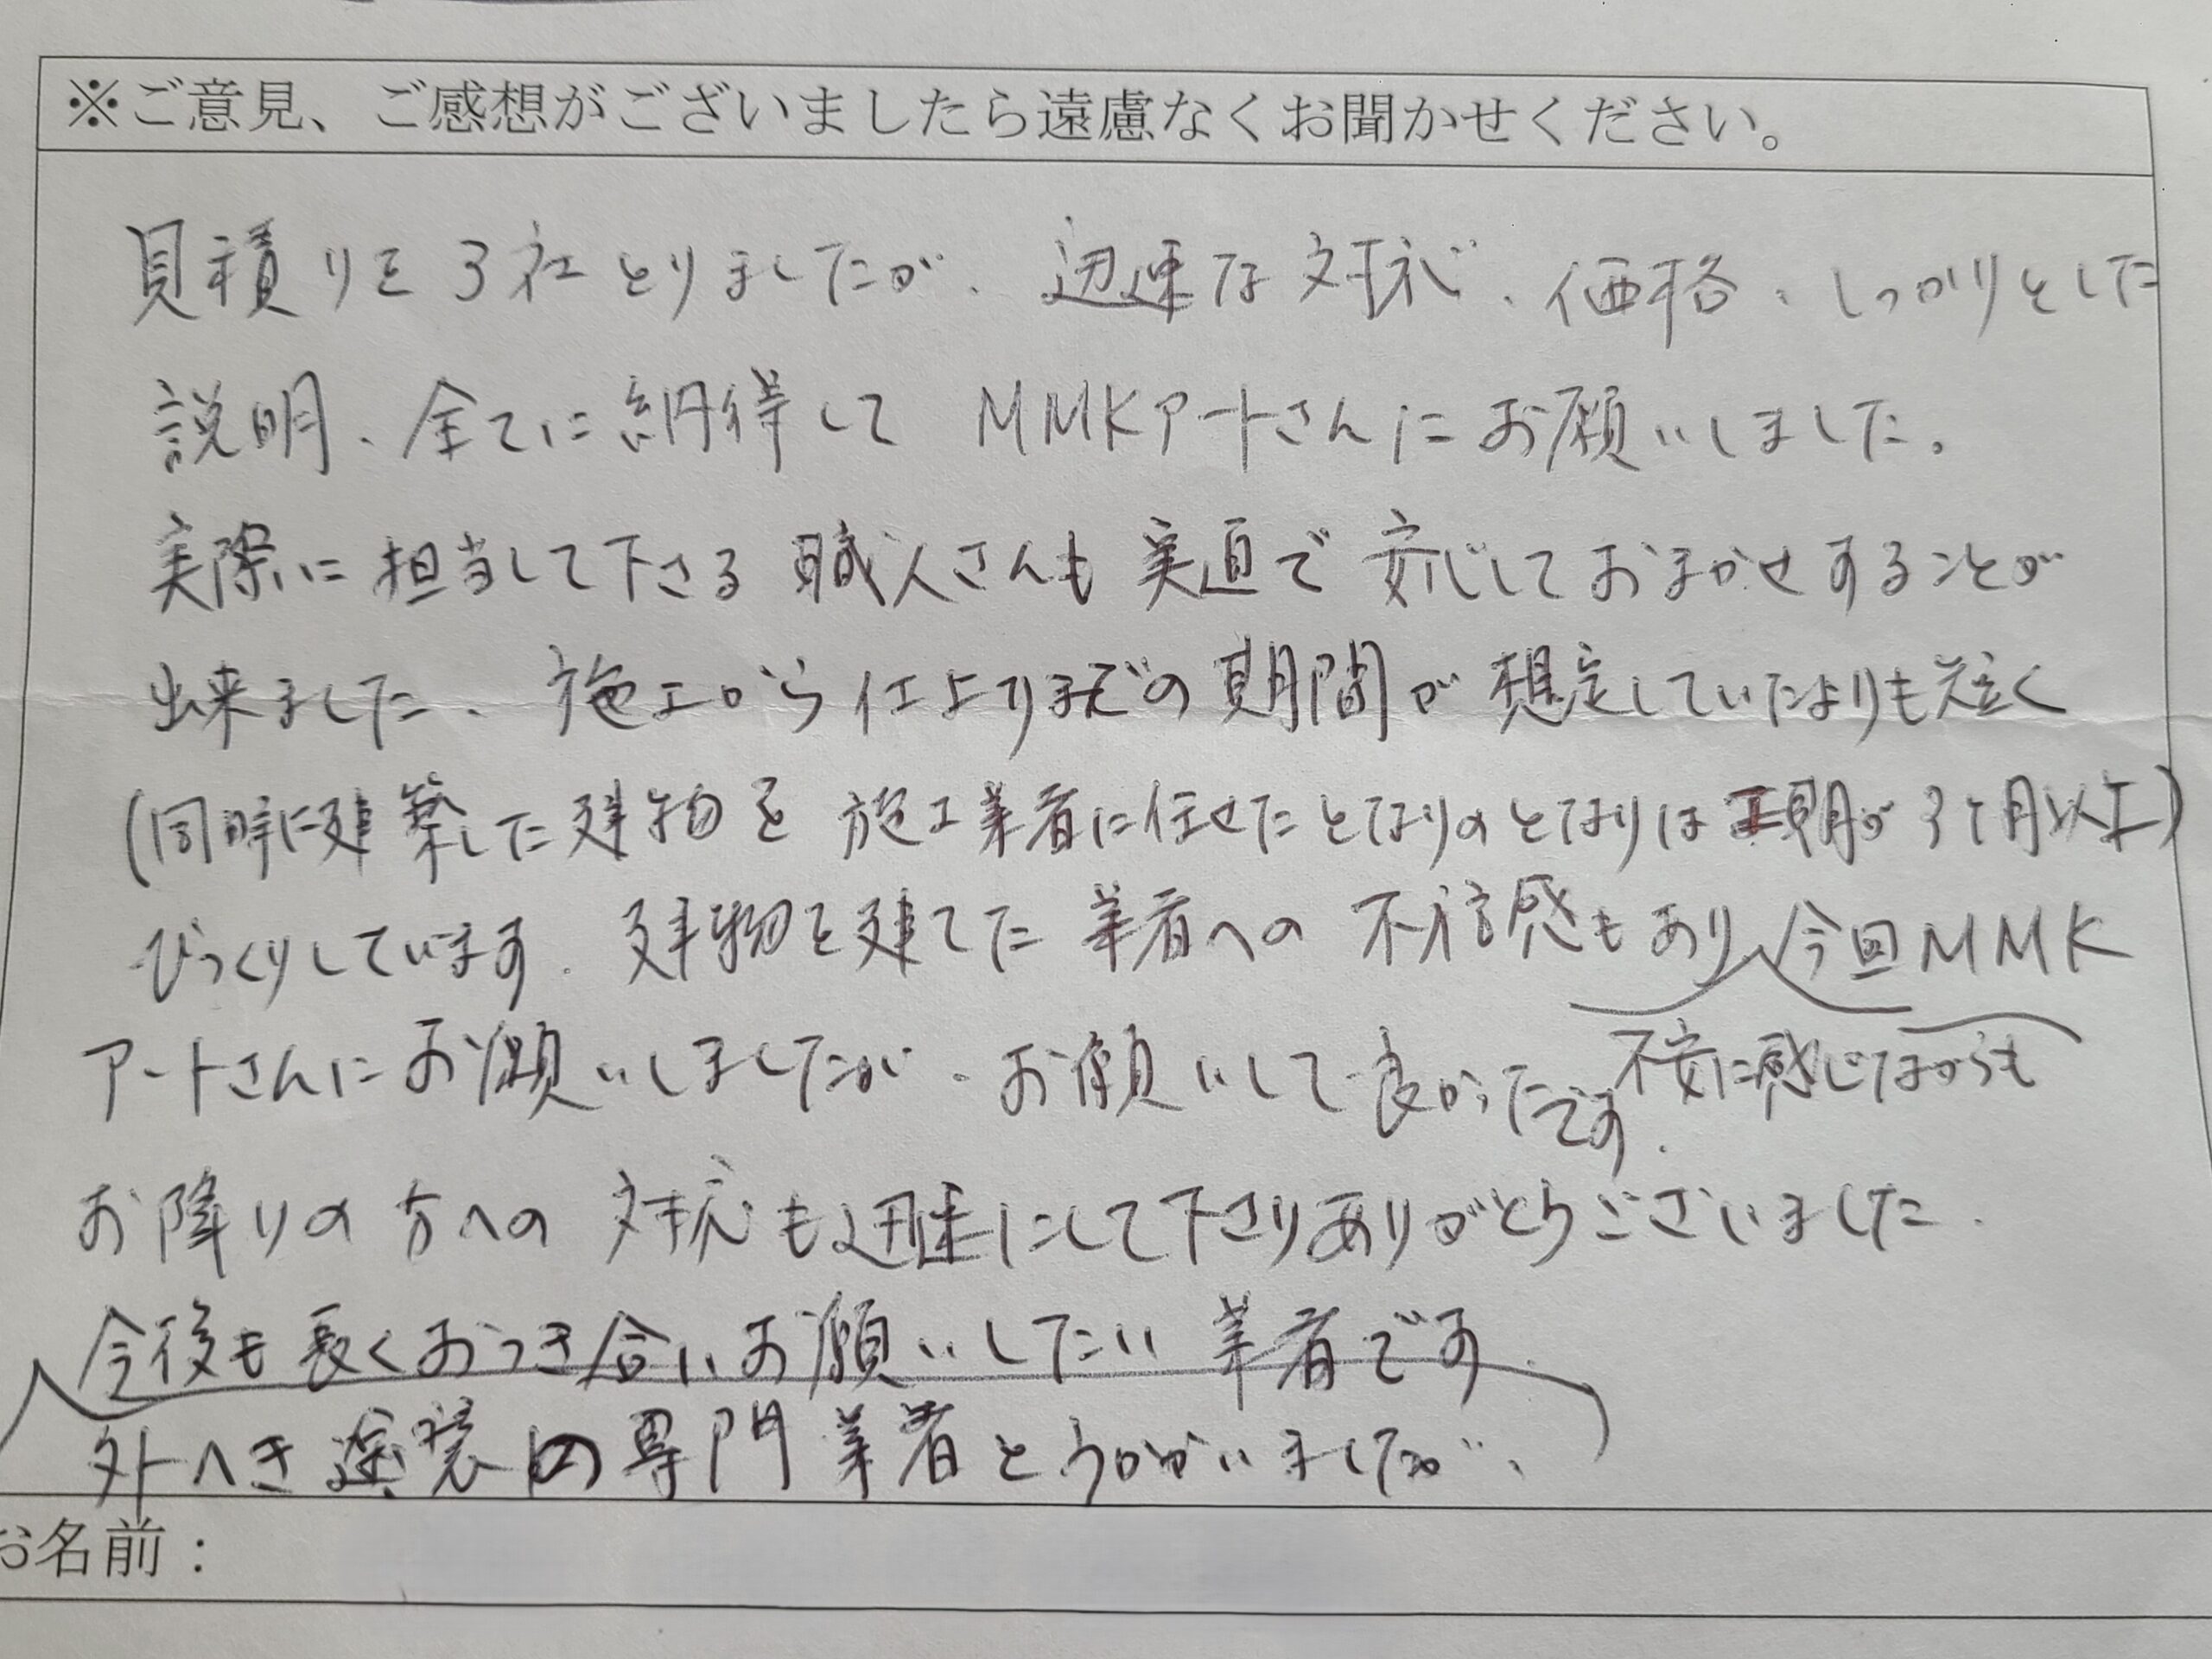 ※ご意見、ご感想がございましたら遠慮なくお聞かせください。
見積りを3社とりましたが、迅速な対応、価格、しっかりとした
説明、全てに納得して MMKアートさんにお願いしました。
実際に担当して下さる職人さんも実直で安心しておまかせすることが
出来ました。施工から仕上りまでの期間が想定していたよりも短く
(同時に建築した建物を施工業者に任せたとなりのとなりは工期が3ヶ月以上)
びっくりしています。建物を建てた業者への不信感もあり、今回MMK
不安に感じながらも
アートさんにお願いしましたが、お願いして良かったです。
お隣りの方への対応も迅速にして下さりありがとうございました。
今後も長くおつき合いお願いしたい業者です。
外へき塗装の専門業者とうかがいましたが、
お名前：